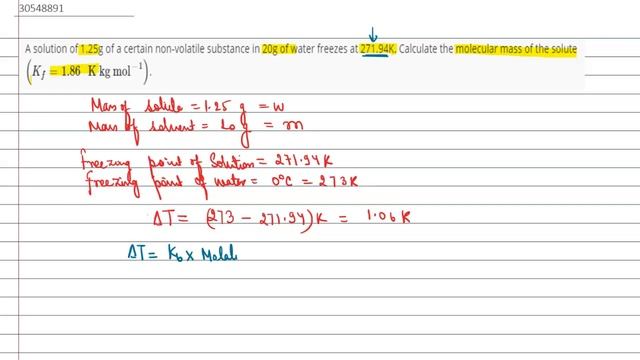 30548891
A solution of 1.25g of a certain non-volatile substance in 20g of water freezes at 271.94K. Calculate the molecular mass of the solute
(K_f = 1.86 K kg mol⁻¹).
Mass of solute = 1.25 g = w
Mass of solvent = 20 g = m
freezing point of solution = 271.94 K
freezing point of water = 0°C = 273 K
ΔT = (273 - 271.94) K = 1.06 K
ΔT = K_b × Molal